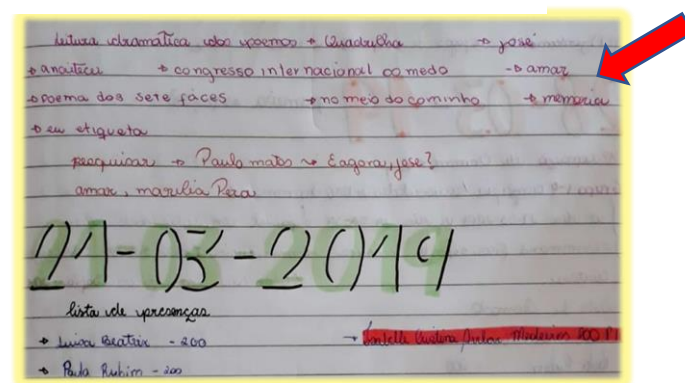 leitura dramática dos poemas → Quadrilha → José
→ anoitecer → congresso internacional do medo → amar
→ poema das sete faces → no meio do caminho → memoria
→ eu etiqueta
pesquisar → Paulo matos ~> E agora, jose?
amar, marilia Pera
21-03-2019
lista de presenças
→ Luisa Beatriz - 200 → Isabelle Cristina Medeiros 200 P1
→ Paula Rubim - 200